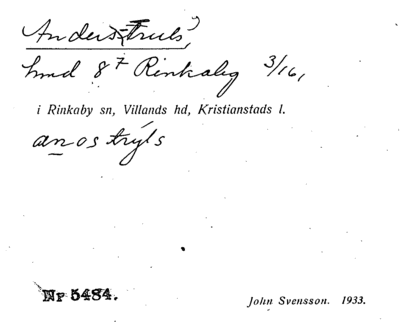 Anders-Truls,
hmd 8⁷ Rinkaby 3/16,
i Rinkaby sn, Villands hd, Kristianstads l.
an os trýls
Nr 5484.
John Svensson. 1933.